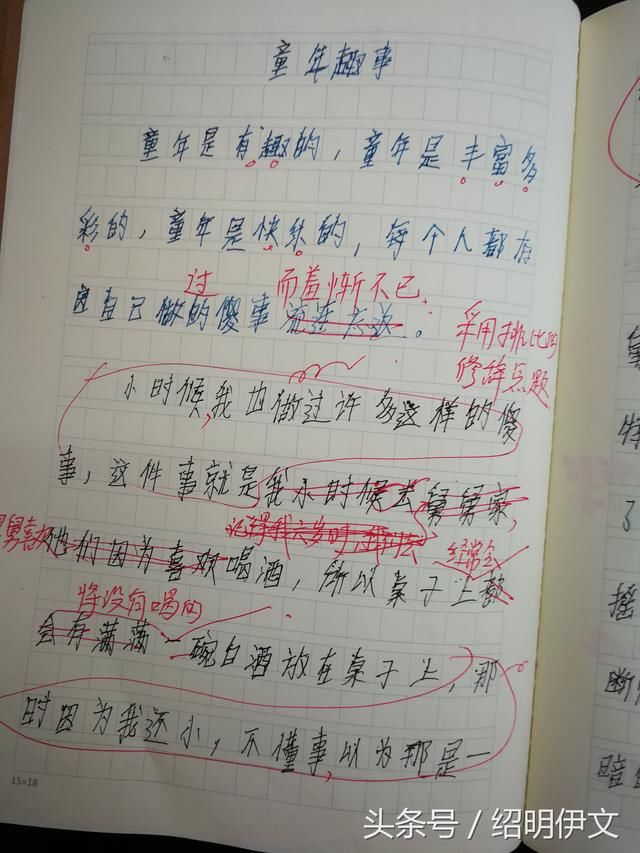 童年趣事
童年是有趣的，童年是丰富多
彩的，童年是快乐的，每个人都有
过 而羞惭不已
自己做的傻事流连忘返。
采用排比的
修辞点题
小时候，我也做过许多这样的傻
事，这件事就是我小时候去舅舅家，
记得我六岁时
舅舅喜欢 经常会
他们因为喜欢喝酒，所以桌子上都
将没有喝的
会有满满一碗白酒放在桌子上，那
时因为我还小，不懂事，以为那是一
15×18
头条号／绍明伊文
了
摇
断
暗